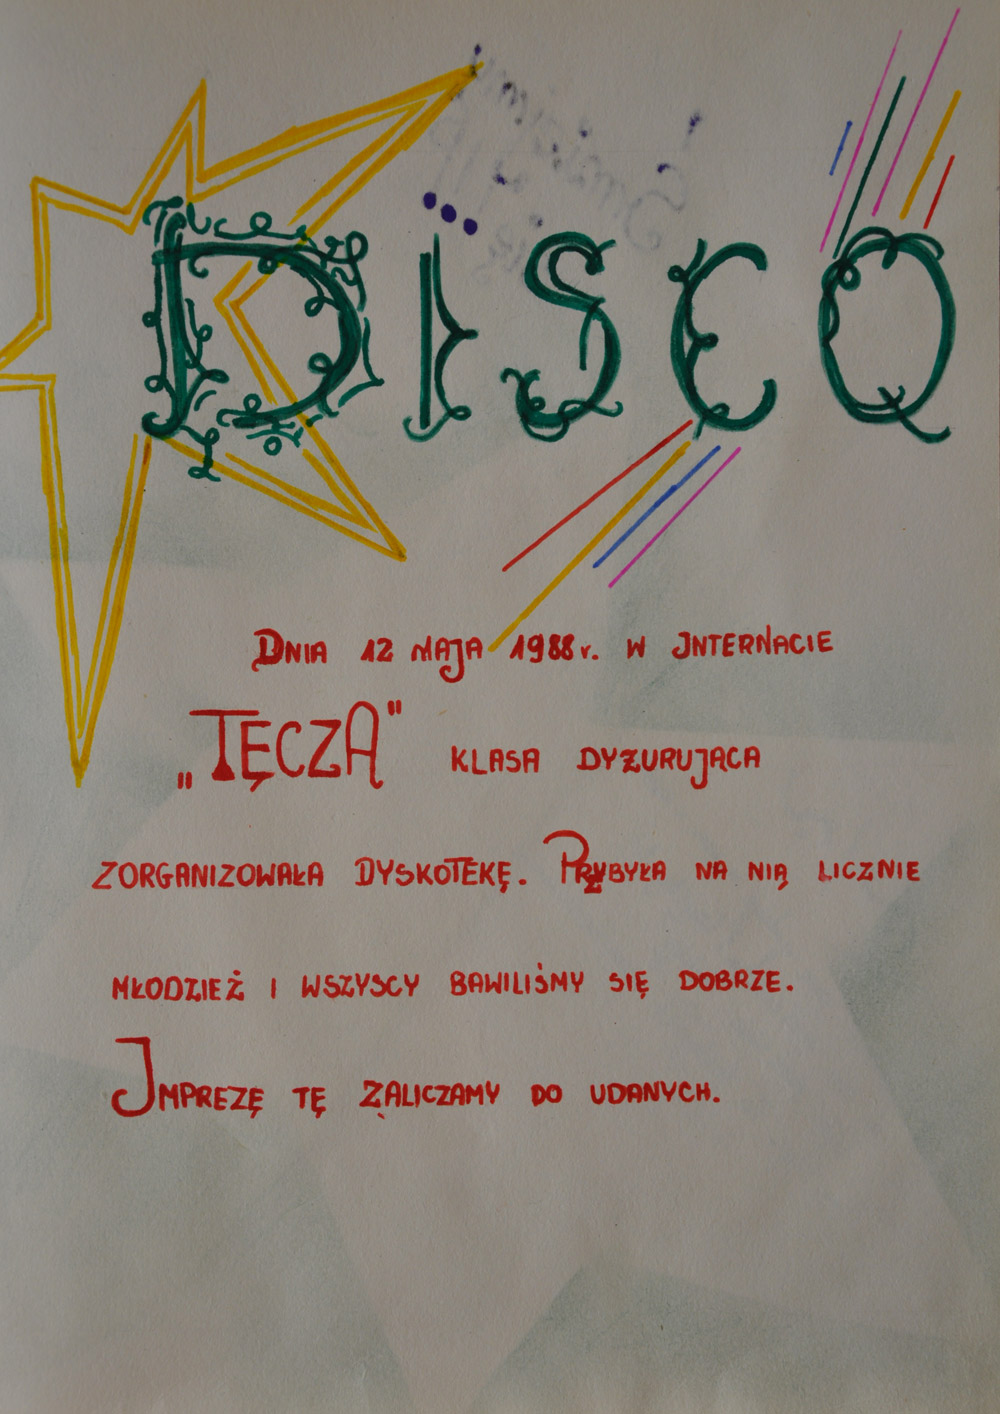 DISCO
DNIA 12 MAJA 1988r. W JNTERNACIE
„TĘCZA" KLASA DYŻURUJĄCA
ZORGANIZOWAŁA DYSKOTEKĘ. PRZYBYŁA NA NIĄ LICZNIE
MŁODZIEŻ I WSZYSCY BAWILIŚMY SIĘ DOBRZE.
JMPREZĘ TĘ ZALICZAMY DO UDANYCH.